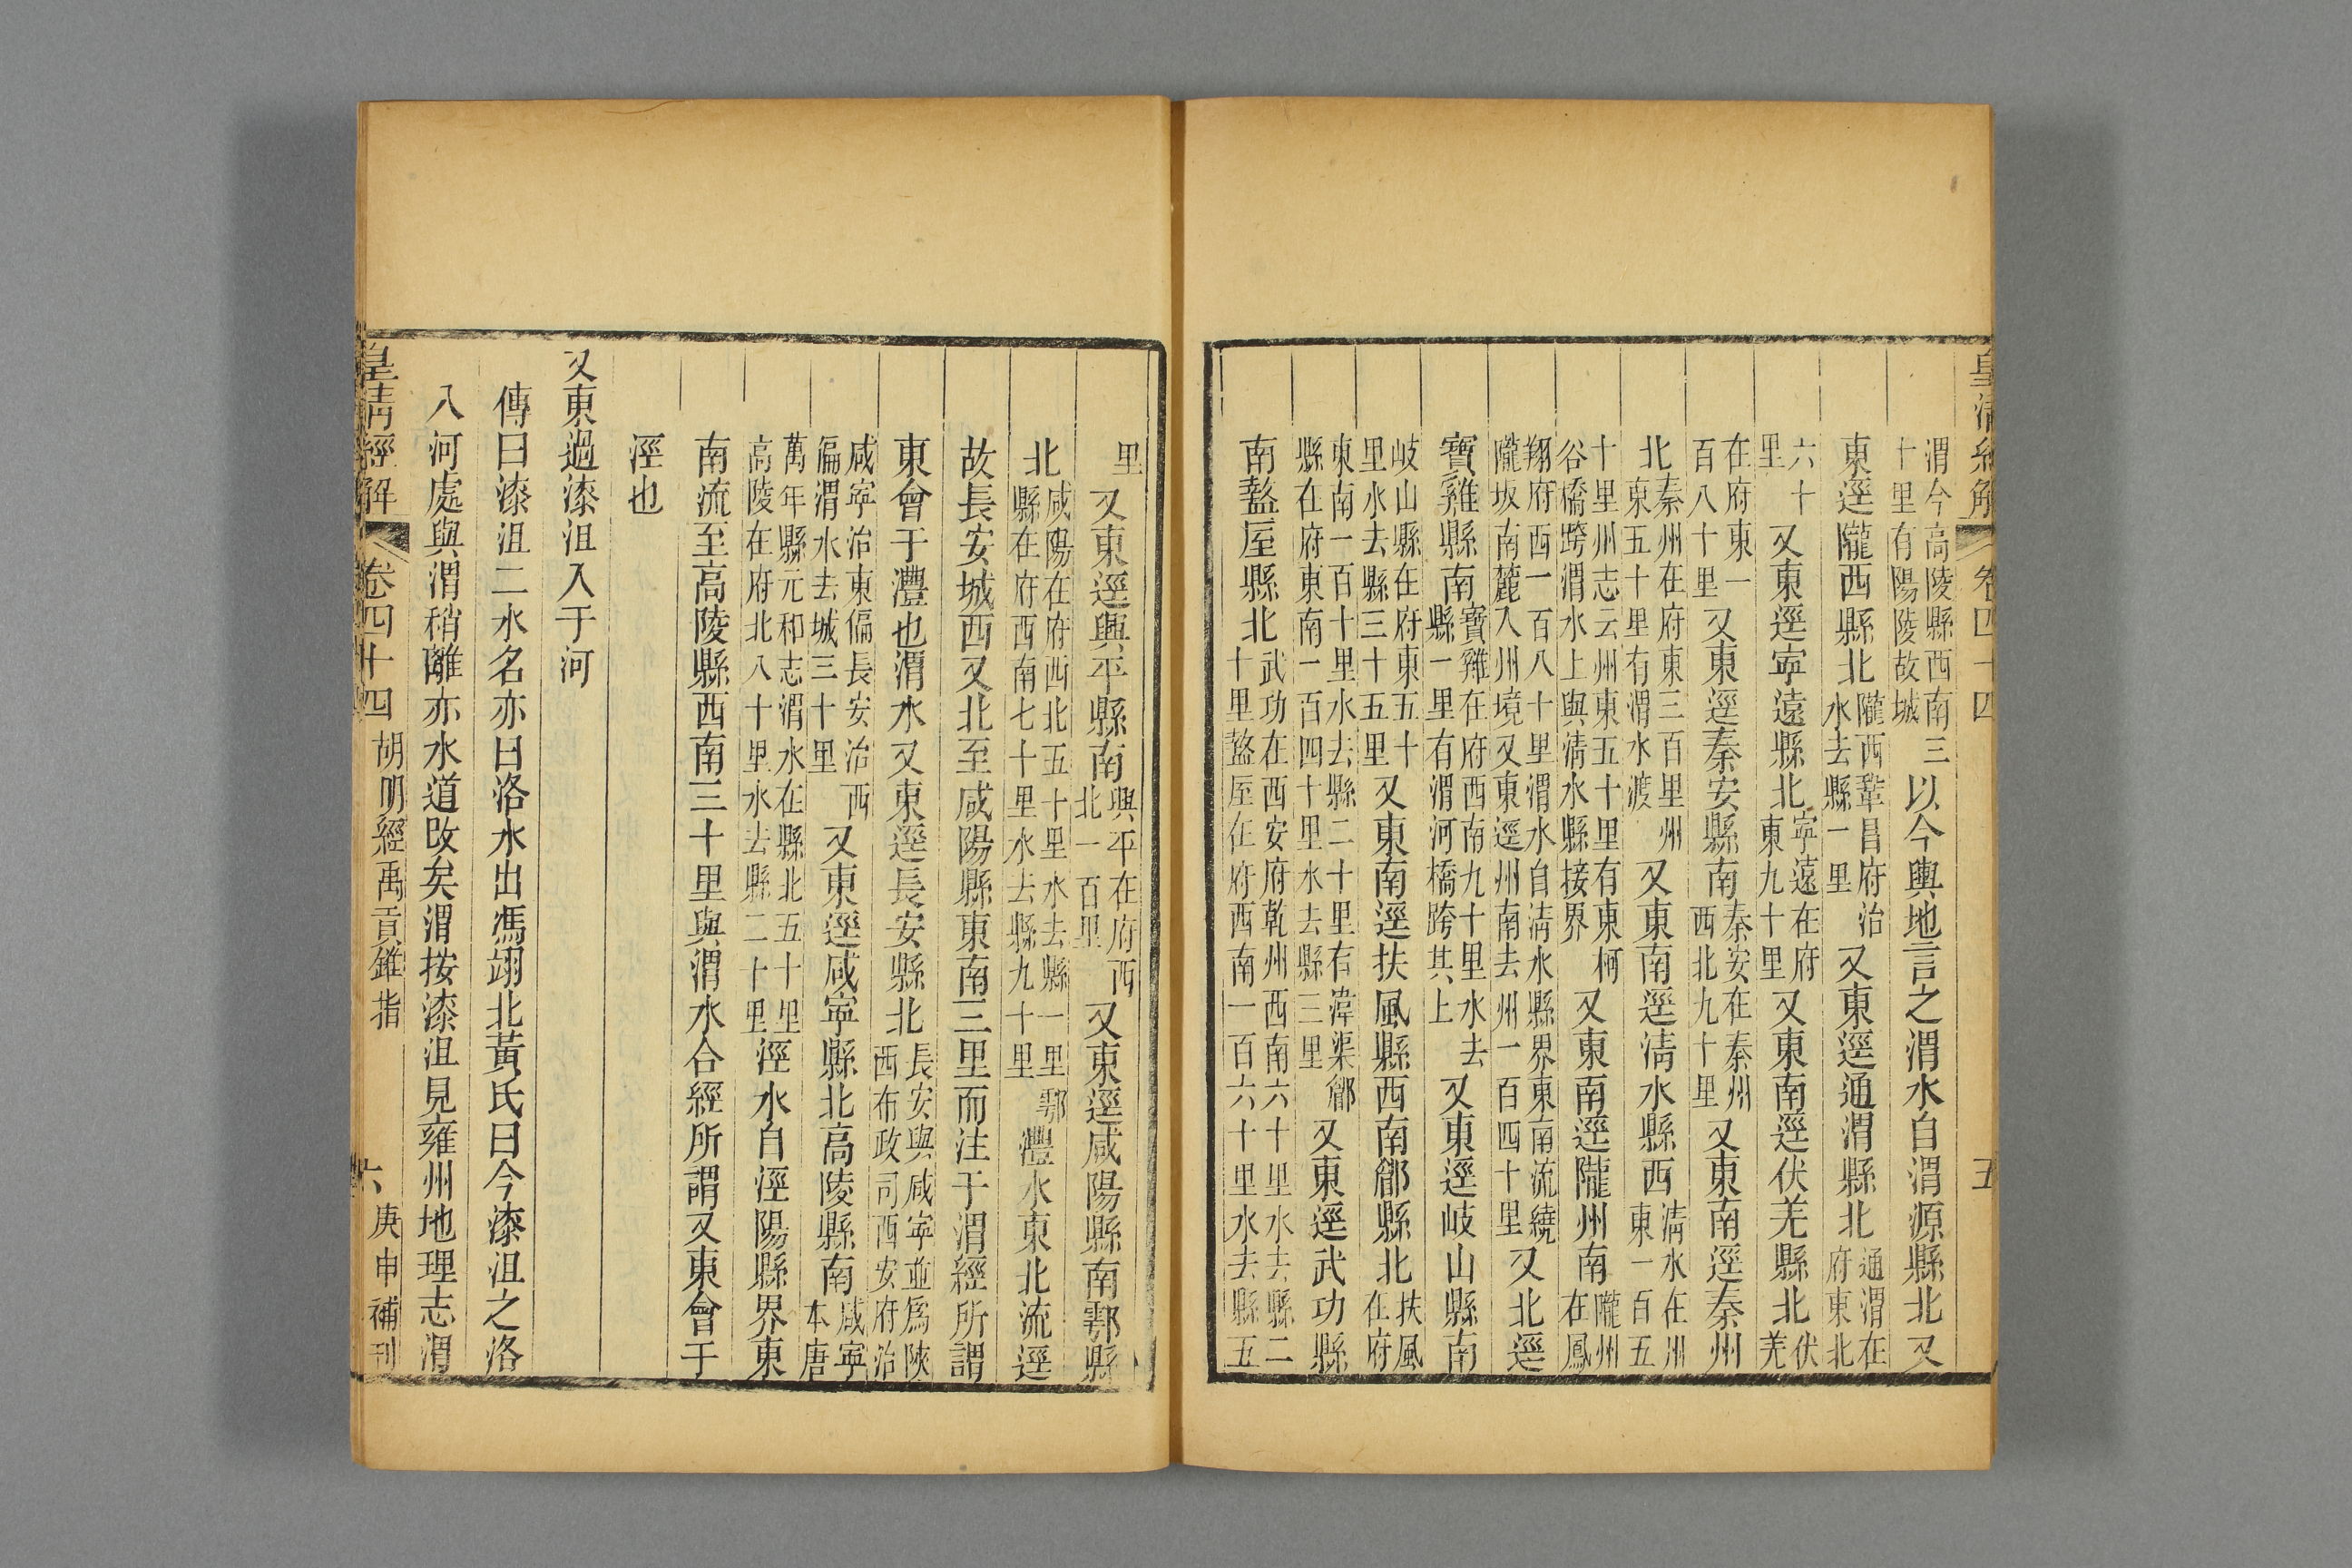 皇清經解 卷四十四 五
渭今高陵縣西南三
十里有陽陵故城
以今輿地言之渭水自渭源縣北又
東逕隴西縣北
隴西鞏昌府治
水去縣一里
又東逕通渭縣北
通渭在
府東北
六十
里
又東逕寧遠縣北
寧遠在府
東九十里
又東南逕伏羌縣北
伏
羌
在府東一
百八十里
又東逕秦安縣南
秦安在秦州
西北九十里
又東南逕秦州
北
秦州在府東三百里州
東五十里有渭水渡
又東南逕清水縣西
清水在州
東一百五
十里州志云州東五十里有東柯
谷橋跨渭水上與清水縣接界
又東南逕隴州南
隴州
在鳳
翔府西一百八十里渭水自清水縣界東南流繞
隴坂南麓入州境又東逕州南去州一百四十里
又北逕
寶雞縣南
寶雞在府西南九十里水去
縣一里有渭河橋跨其上
又東逕岐山縣南
岐山縣在府東五十
里水去縣三十五里
又東南逕扶風縣西南郿縣北
扶風
在府
東南一百十里水去縣二十里有湋渠郿
縣在府東南一百四十里水去縣三里
又東逕武功縣
南盩厔縣北
武功在西安府乾州西南六十里水去縣二
十里盩厔在府西南一百六十里水去縣五
里
又東逕興平縣南
興平在府西
北一百里
又東逕咸陽縣南鄠縣
北
咸陽在府西北五十里水去縣一里鄠
縣在府西南七十里水去縣九十里
灃水東北流逕
故長安城西又北至咸陽縣東南三里而注于渭經所謂
東會于灃也渭水又東逕長安縣北
長安與咸寧並爲陝
西布政司西安府治
咸寧治東偏長安治西
偏渭水去城三十里
又東逕咸寧縣北高陵縣南
咸寧
本唐
萬年縣元和志渭水在縣北五十里
高陵在府北八十里水去縣二十里
涇水自涇陽縣界東
南流至高陵縣西南三十里與渭水合經所謂又東會于
涇也
又東過漆沮入于河
傳曰漆沮二水名亦曰洛水出馮翊北黃氏曰今漆沮之洛
入河處與渭稍離亦水道改矣渭按漆沮見雍州地理志渭
皇清經解 卷四十四 胡朏明經禹貢錐指 六 庚申補刊